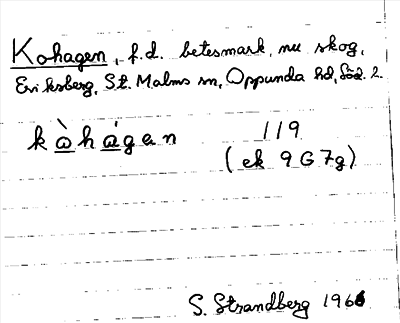 Kohagen, f.d. betesmark, nu skog,
Eriksberg, St. Malms sn, Oppunda hd, Söd. l.
kòhágen 119
(ek 9G7g)
S. Strandberg 1966